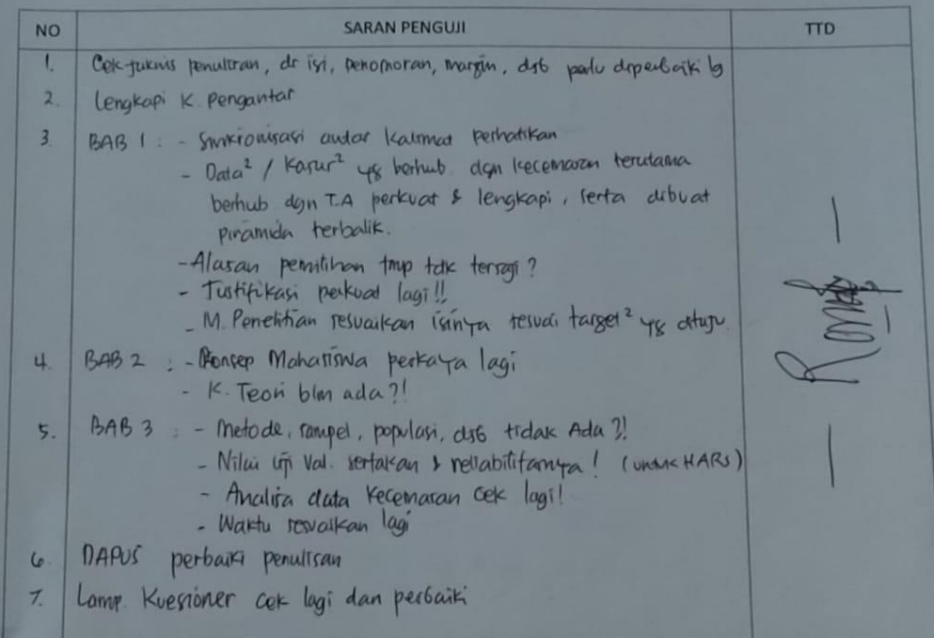 NO SARAN PENGUJI TTD
1. Cek juknis penulisan, dr isi, penomoran, margin, dsb perlu diperbaiki lg
2. Lengkapi K. Pengantar
3. BAB 1 : - Sinkronisasi antar kalimat perhatikan
- Data² / Kasus² yg berhub. dgn kecemasan terutama
berhub dgn T.A perkuat & lengkapi, serta dibuat
piramida terbalik.
- Alasan pemilihan tmp tdk tersaji?
- Justifikasi perkuat lagi!!
- M. Penelitian sesuaikan isinya sesuai target² yg dituju
4. BAB 2 : - Konsep Mahasiswa perkaya lagi
- K. Teori blm ada?!
5. BAB 3 : - Metode, sampel, populasi, dsb tidak Ada?!
- Nilai uji Val. sertakan & reliabilitasnya! (untuk HARS)
- Analisa data kecemasan cek lagi!
- Waktu sesuaikan lagi
6. DAPUS perbaiki penulisan
7. Lamp. Kuesioner cek lagi dan perbaiki